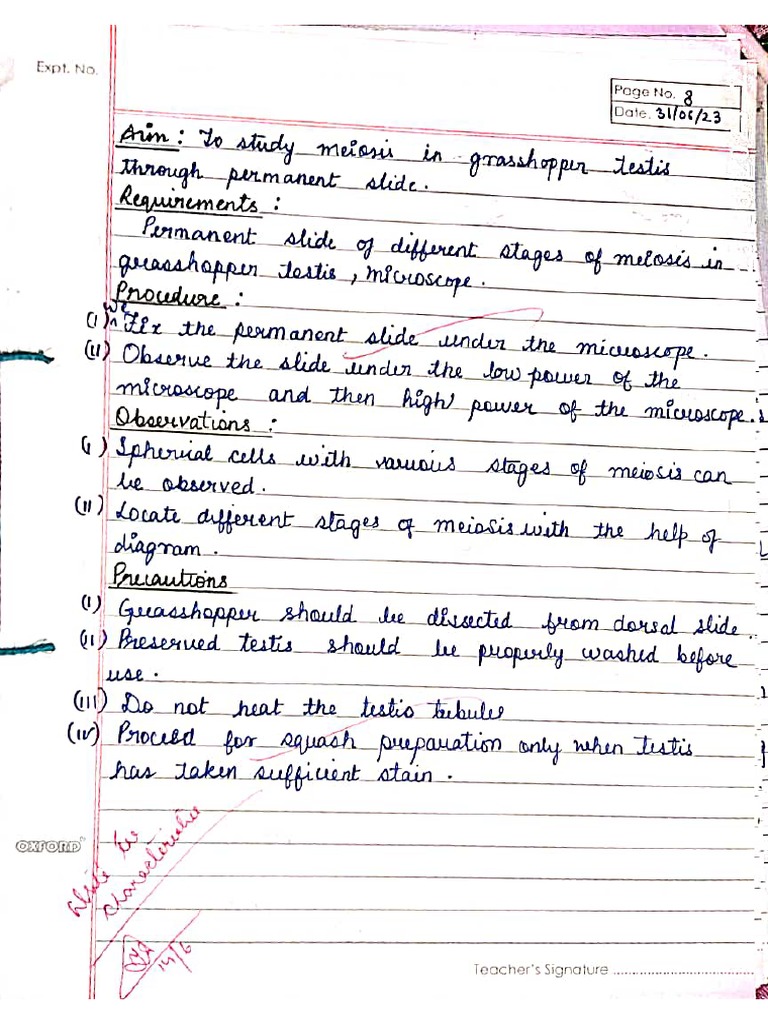 Expt. No.
Page No. 8
Date. 31/06/23
Aim : To study meiosis in grasshopper testis
through permanent slide.
Requirements :
Permanent slide of different stages of meiosis in
grasshopper testis, microscope.
Procedure :
(I) we Fix the permanent slide under the microscope.
(II) Observe the slide under the low power of the
microscope and then high power of the microscope.
Observations :
(I) Spherical cells with various stages of meiosis can
be observed.
(II) Locate different stages of meiosis with the help of
diagram.
Precautions
(I) Grasshopper should be dissected from dorsal slide.
(II) Preserved testis should be properly washed before
use.
(III) Do not heat the testis tubules
(IV) Proceed for squash preparation only when testis
has taken sufficient stain.
OXFORD
characteristics
14/6
Teacher's Signature